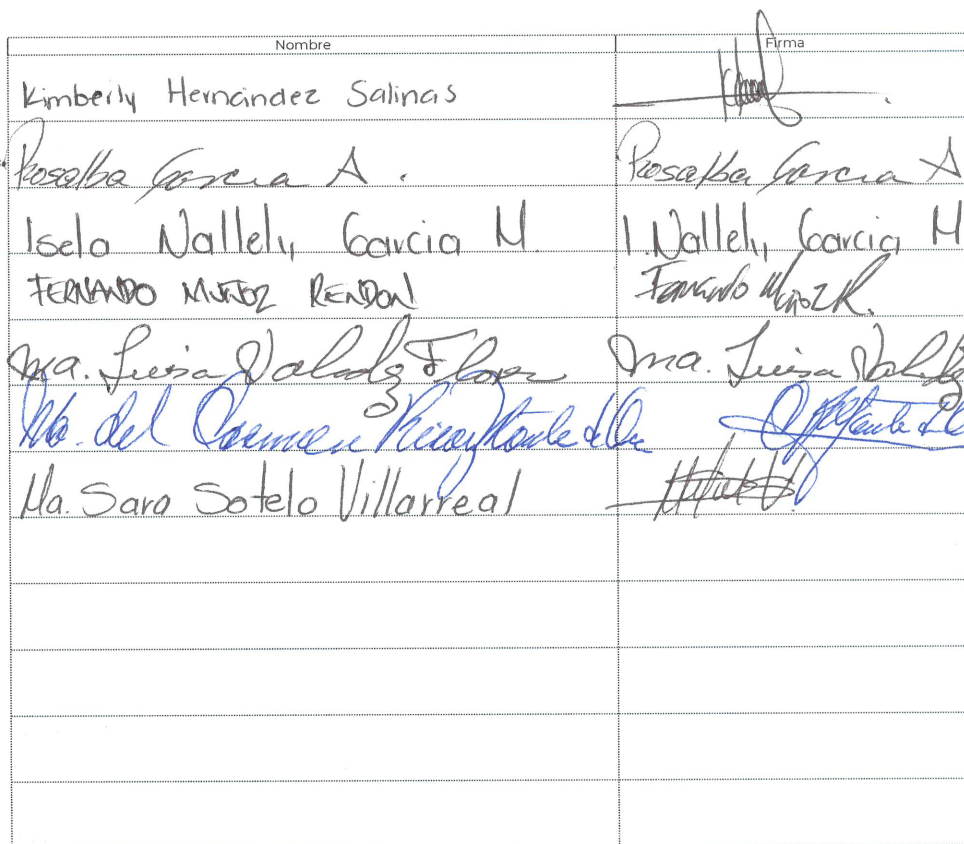 Nombre Firma
Kimberly Hernández Salinas
Rosalba Garcia A. Rosalba Garcia A
Isela Nallely Garcia M. I. Nallely Garcia M
FERNANDO MUÑOZ RENDON Fernando Muñoz R.
Ma. Luisa Valadez Flores Ma. Luisa
Ma. del Carmen
Ma. Sara Sotelo Villarreal